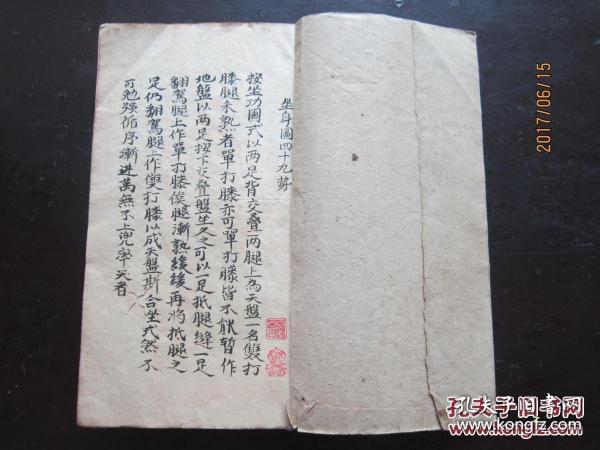 坐身圖四十九勢
按坐功圖式以兩足背交叠兩腿上為天盤一名雙打
膝腿未熟者單打膝亦可單打膝皆不能暫作
地盤以兩足按下交叠盤坐久之可以一足抵腿縫一足
翻駕腿上作單打膝俟腿漸熟緩緩再將抵腿之
足仍翻駕腿上作雙打膝以成天盤斯合坐式然不
可勉强循序漸進萬無不上兜率天者
2017/06/15
孔夫子旧书网
www.kongfz.com